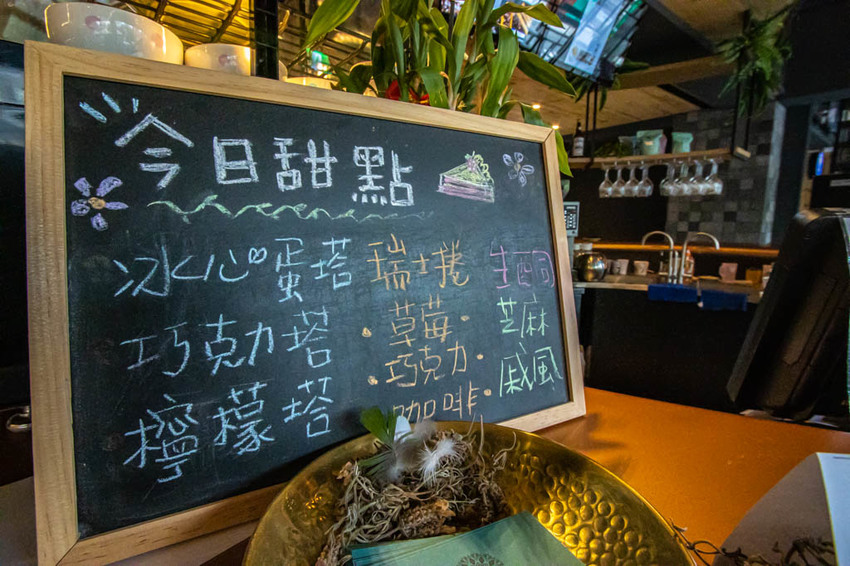 今日甜點
冰心蛋塔
巧克力塔
檸檬塔
瑞士捲
·草莓·
·巧克力·
咖啡
生酮
芝麻
戚風